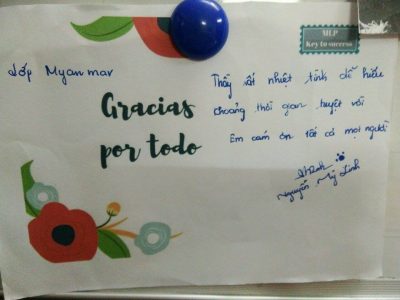 MLP
Key to success
Lớp Myanmar
Gracias
por todo
Thầy rất nhiệt tình dễ hiểu
choảng thời gian tuyệt vời
Em cám ơn tất cả mọi người
Nguyễn Mỹ Linh